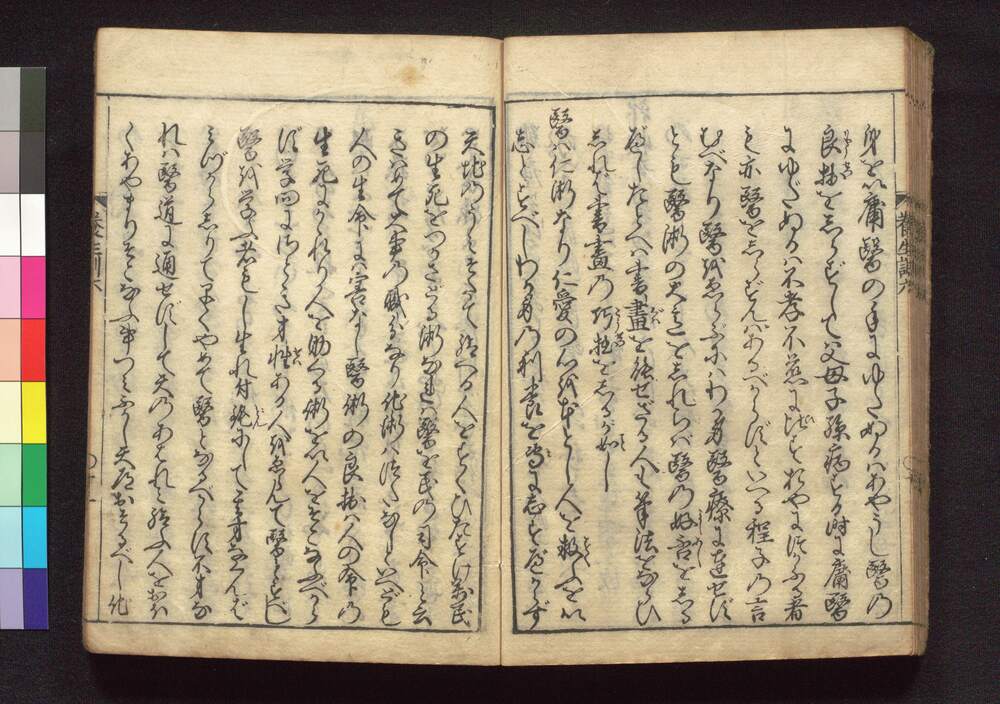 身を以庸醫の手にゆだぬるはあやうし醫の
良拙をしらずして父母子孫病する時に庸醫
にゆだぬるは不孝不慈に比すおやにつかふる者
も亦醫をしらずんばあるべからずといへる程子の言
むべなり醫をゑらぶにはわが身醫療に達せず
とも醫術の大意をしれらば醫の好否をしる
べしたとへば書畫を能せざる人も筆法をならひ
しれば書畫の巧拙をしるが如し
醫は仁術なり仁愛の心を本とし人を救ふを以
志とすべしわが身の利養を專に志すべからず
天地のうみそだて給へる人をすくひたすけ萬民
の生死をつかさどる術なれば醫を民の司命と云
きはめて大事の職分なり他術はつたなしといへども
人の生命には害なし醫術の良拙は人の命の
生死にかゝれり人を助くる術を以人をそこなふべから
ず學問にさとき才性ある人をゑらんで醫とすべし
醫を學ぶ者もし生れ付鈍にして其才なくんば
みづからしりて早くやめて醫となるべからず不才な
れば醫道に通せずして天のあはれみ給ふ人をおほ
くあやまりそこなふ事つみふかし天道おそるべし他
養生訓六
養生訓六